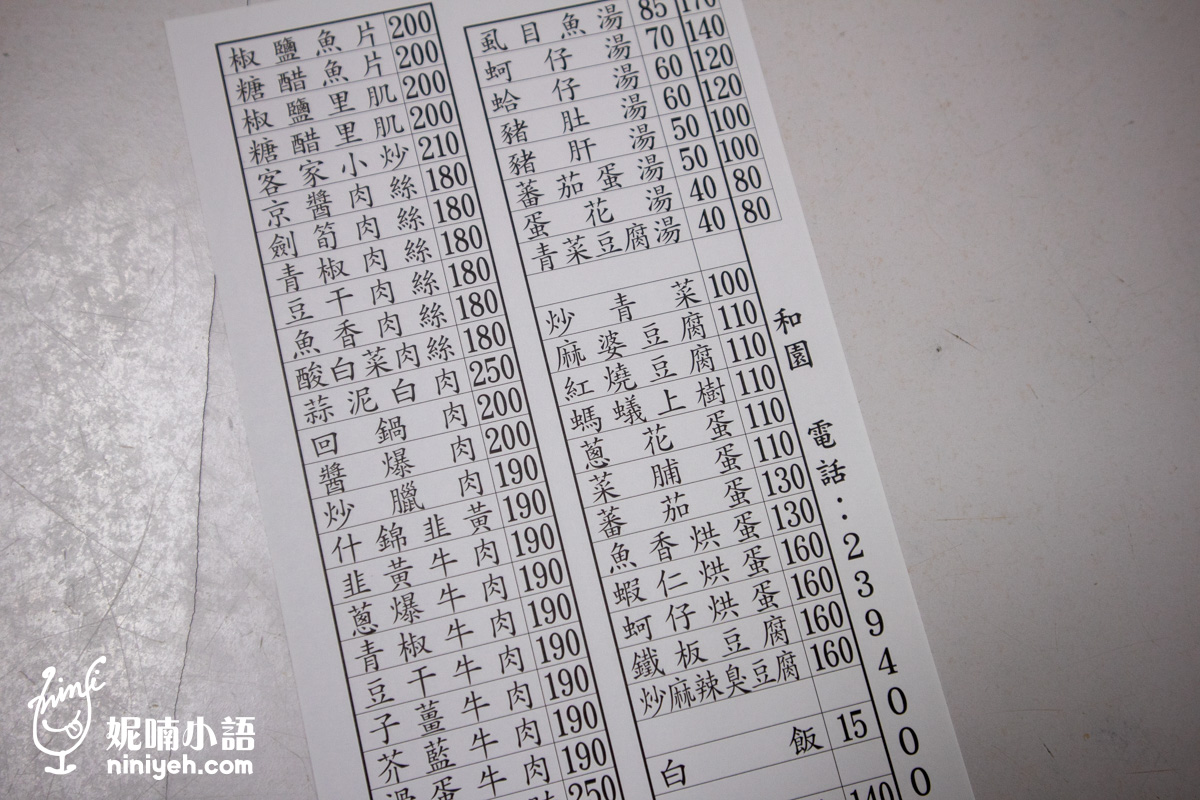 椒鹽魚片 200
糖醋魚片 200
椒鹽里肌 200
糖醋里肌 200
客家小炒 210
京醬肉絲 180
劍筍肉絲 180
青椒肉絲 180
豆干肉絲 180
魚香肉絲 180
酸白菜肉絲 180
蒜泥白肉 250
回鍋肉 200
醬爆肉 200
炒臘肉 190
什錦韭黃 190
韭黃牛肉 190
蔥爆牛肉 190
青椒牛肉 190
豆干牛肉 190
子薑牛肉 190
芥藍牛肉 190
滑蛋牛肉 190
250
虱目魚湯 85 170
蚵仔湯 70 140
蛤仔湯 60 120
豬肚湯 60 120
豬肝湯 50 100
蕃茄蛋湯 50 100
蛋花湯 40 80
青菜豆腐湯 40 80
炒青菜 100
麻婆豆腐 110
紅燒豆腐 110
螞蟻上樹 110
蔥花蛋 110
菜脯蛋 110
蕃茄蛋 130
魚香烘蛋 130
蝦仁烘蛋 160
蚵仔烘蛋 160
鐵板豆腐 160
炒麻辣臭豆腐 160
白飯 15
140
和園 電話:2394000
ninfi
妮喃小語
niniyeh.com